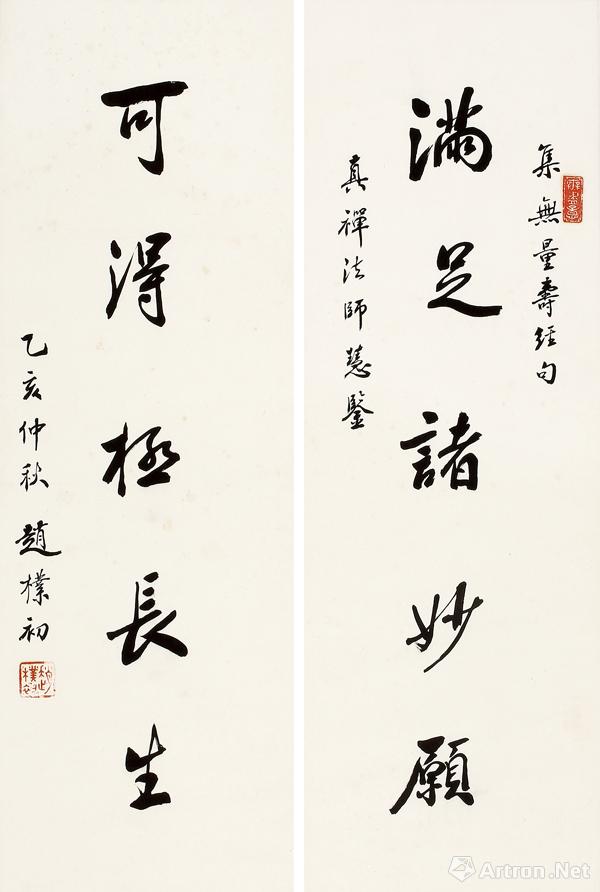 集無量壽經句
滿足諸妙願
真禪法師慧鑒
可得極長生
乙亥仲秋 趙樸初
Artron.Net